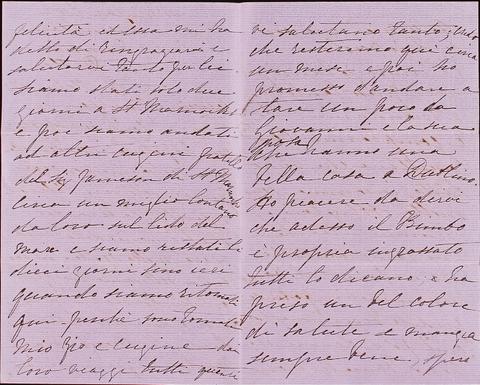 felicità ed essa mi ha
detto di ringraziarvi e
salutarvi tanto per lei
siamo stati solo due
giorni a St Marnock's
e poi siamo andati
ad altri cugini fratello
del Sig Jameson di St Marnock's
circa un miglio lontano
da loro sul lido del
mare e siamo restati là
dieci giorni sino ieri
quando siamo ritornati
qui - perché sono tornati
mio Zio e cugine dai
loro viaggi tutti quanti
vi salutano tanto, credo
che resteremo qui circa
un mese e poi ho
promesso d'andare a
stare un poco da
Giovanni e la sua
sposa
che hanno una
bella casa a Dublino.
Ho piacere da dirvi
che adesso il Bimbo
è proprio ingrassato
tutti lo dicono, e ha
preso un bel colore
di salute e mangia
sempre bene, spero